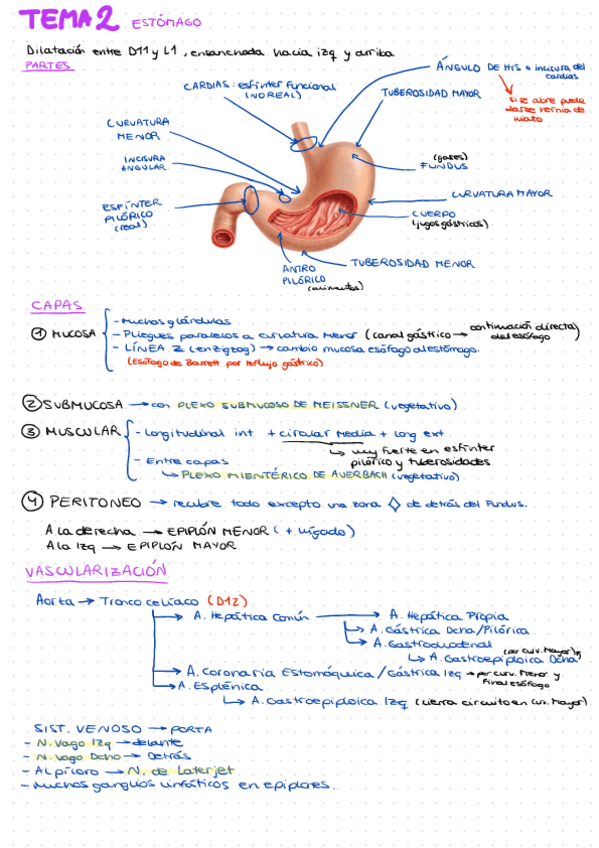 TEMA 2 ESTÓMAGO
Dilatación entre D11 y L1, ensanchada hacia izq y arriba
PARTES
ÁNGULO DE HIS o incisura del cardias
si se abre puede darse hernia de hiato
CARDIAS: esfínter funcional (NO REAL)
TUBEROSIDAD MAYOR
CURVATURA MENOR
(gases)
FUNDUS
INCISURA ANGULAR
CURVATURA MAYOR
ESFÍNTER PILÓRICO (real)
CUERPO (jugos gástricos)
TUBEROSIDAD MENOR
ANTRO PILÓRICO
CAPAS
① MUCOSA
- Muchas glándulas
- Pliegues paralelos a curvatura menor (canal gástrico → continuación directa del esófago)
- LÍNEA Z (en zigzag) → cambio mucosa esófago al estómago.
(Esófago de Barrett por reflujo gástrico)
② SUBMUCOSA → con PLEXO SUBMUCOSO DE MEISSNER (vegetativo)
③ MUSCULAR
- Longitudinal int + circular media + long ext
↳ muy fuerte en esfínter pilórico y tuberosidades
- Entre capas
↳ PLEXO MIENTÉRICO DE AUERBACH (vegetativo)
④ PERITONEO → recubre todo excepto una zona ◇ de detrás del Fundus.
A la derecha → EPIPLÓN MENOR ( + hígado)
A la Izq → EPIPLÓN MAYOR
VASCULARIZACIÓN
Aorta → Tronco celíaco (D12)
→ A. Hepática Común → A. Hepática Propia
↳ A. Gástrica Dcha/Pilórica
↳ A. Gastroduodenal
(por curv. Mayor)
↳ A. Gastroepiploica Dcha
→ A. Coronaria Estomáquica/Gástrica Izq → por curv. Menor y final esófago
→ A. Esplénica
↳ A. Gastroepiploica Izq (cierra circuito en cur. Mayor)
SIST. VENOSO → PORTA
- N. Vago Izq → delante
- N. Vago Dcho → Detrás
- Al píloro → N. de Laterjet
- Muchos ganglios linfáticos en epiplones.